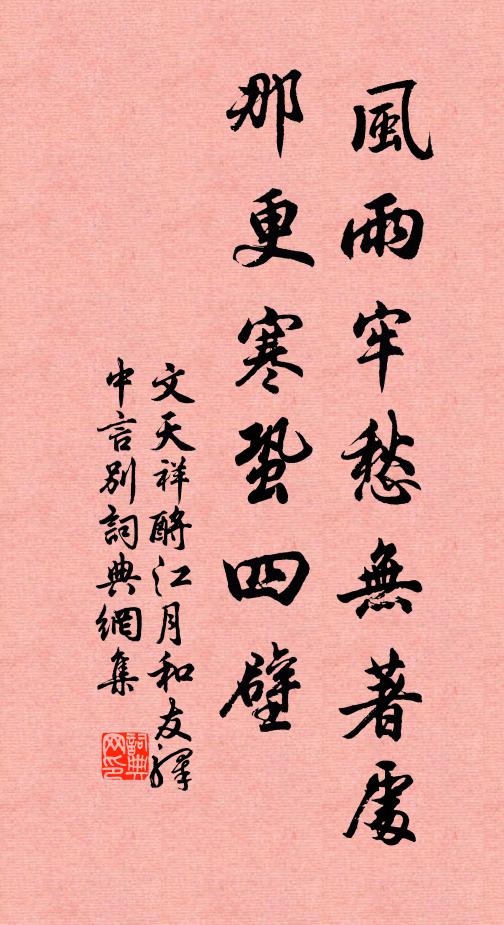 風雨牢愁無著處
那更寒蛩四壁
文天祥酹江月和友驛
中言別詞典網集
詞典網印